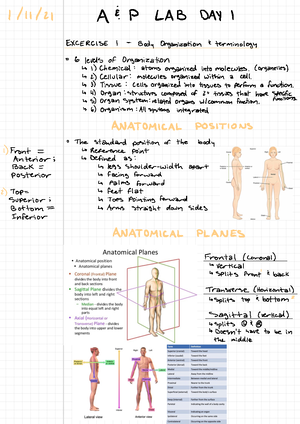 1/11/21
A & P LAB DAY 1
EXCERCISE 1 - Body Organization & terminology
6 levels of Organization
1) Chemical: atoms organized into molecules. (organelles)
2) Cellular: molecules organized within a cell
3) Tissue: Cells organized into tissues to perform a function.
4) Organ: structure composed of 2+ tissues that have specific functions
5) Organ System: related organs w/common function.
6) Organism: All systems integrated
ANATOMICAL POSITIONS
1) Front = Anterior;
Back = Posterior
2) Top = Superior;
Bottom = Inferior
The standard position of the body
Reference point
Defined as:
legs shoulder-width apart
facing forward
Palms forward
feet flat
Toes pointing forward
Arms straight down sides
ANATOMICAL PLANES
Anatomical Planes
Anatomical position
Anatomical planes
Coronal (frontal) Plane - divides the body into front and back sections
Sagittal Plane - divides the body into left and right sections
Median - divides the body into equal left and right parts
Axial (horizontal or Transverse) Plane - divides the body into upper and lower segments
Frontal (coronal)
Vertical
Splits front & back
Transverse (Horizontal)
Splits top & bottom
Sagittal (vertical)
Splits L & R
Doesn't have to be in the middle
Lateral view
Anterior view